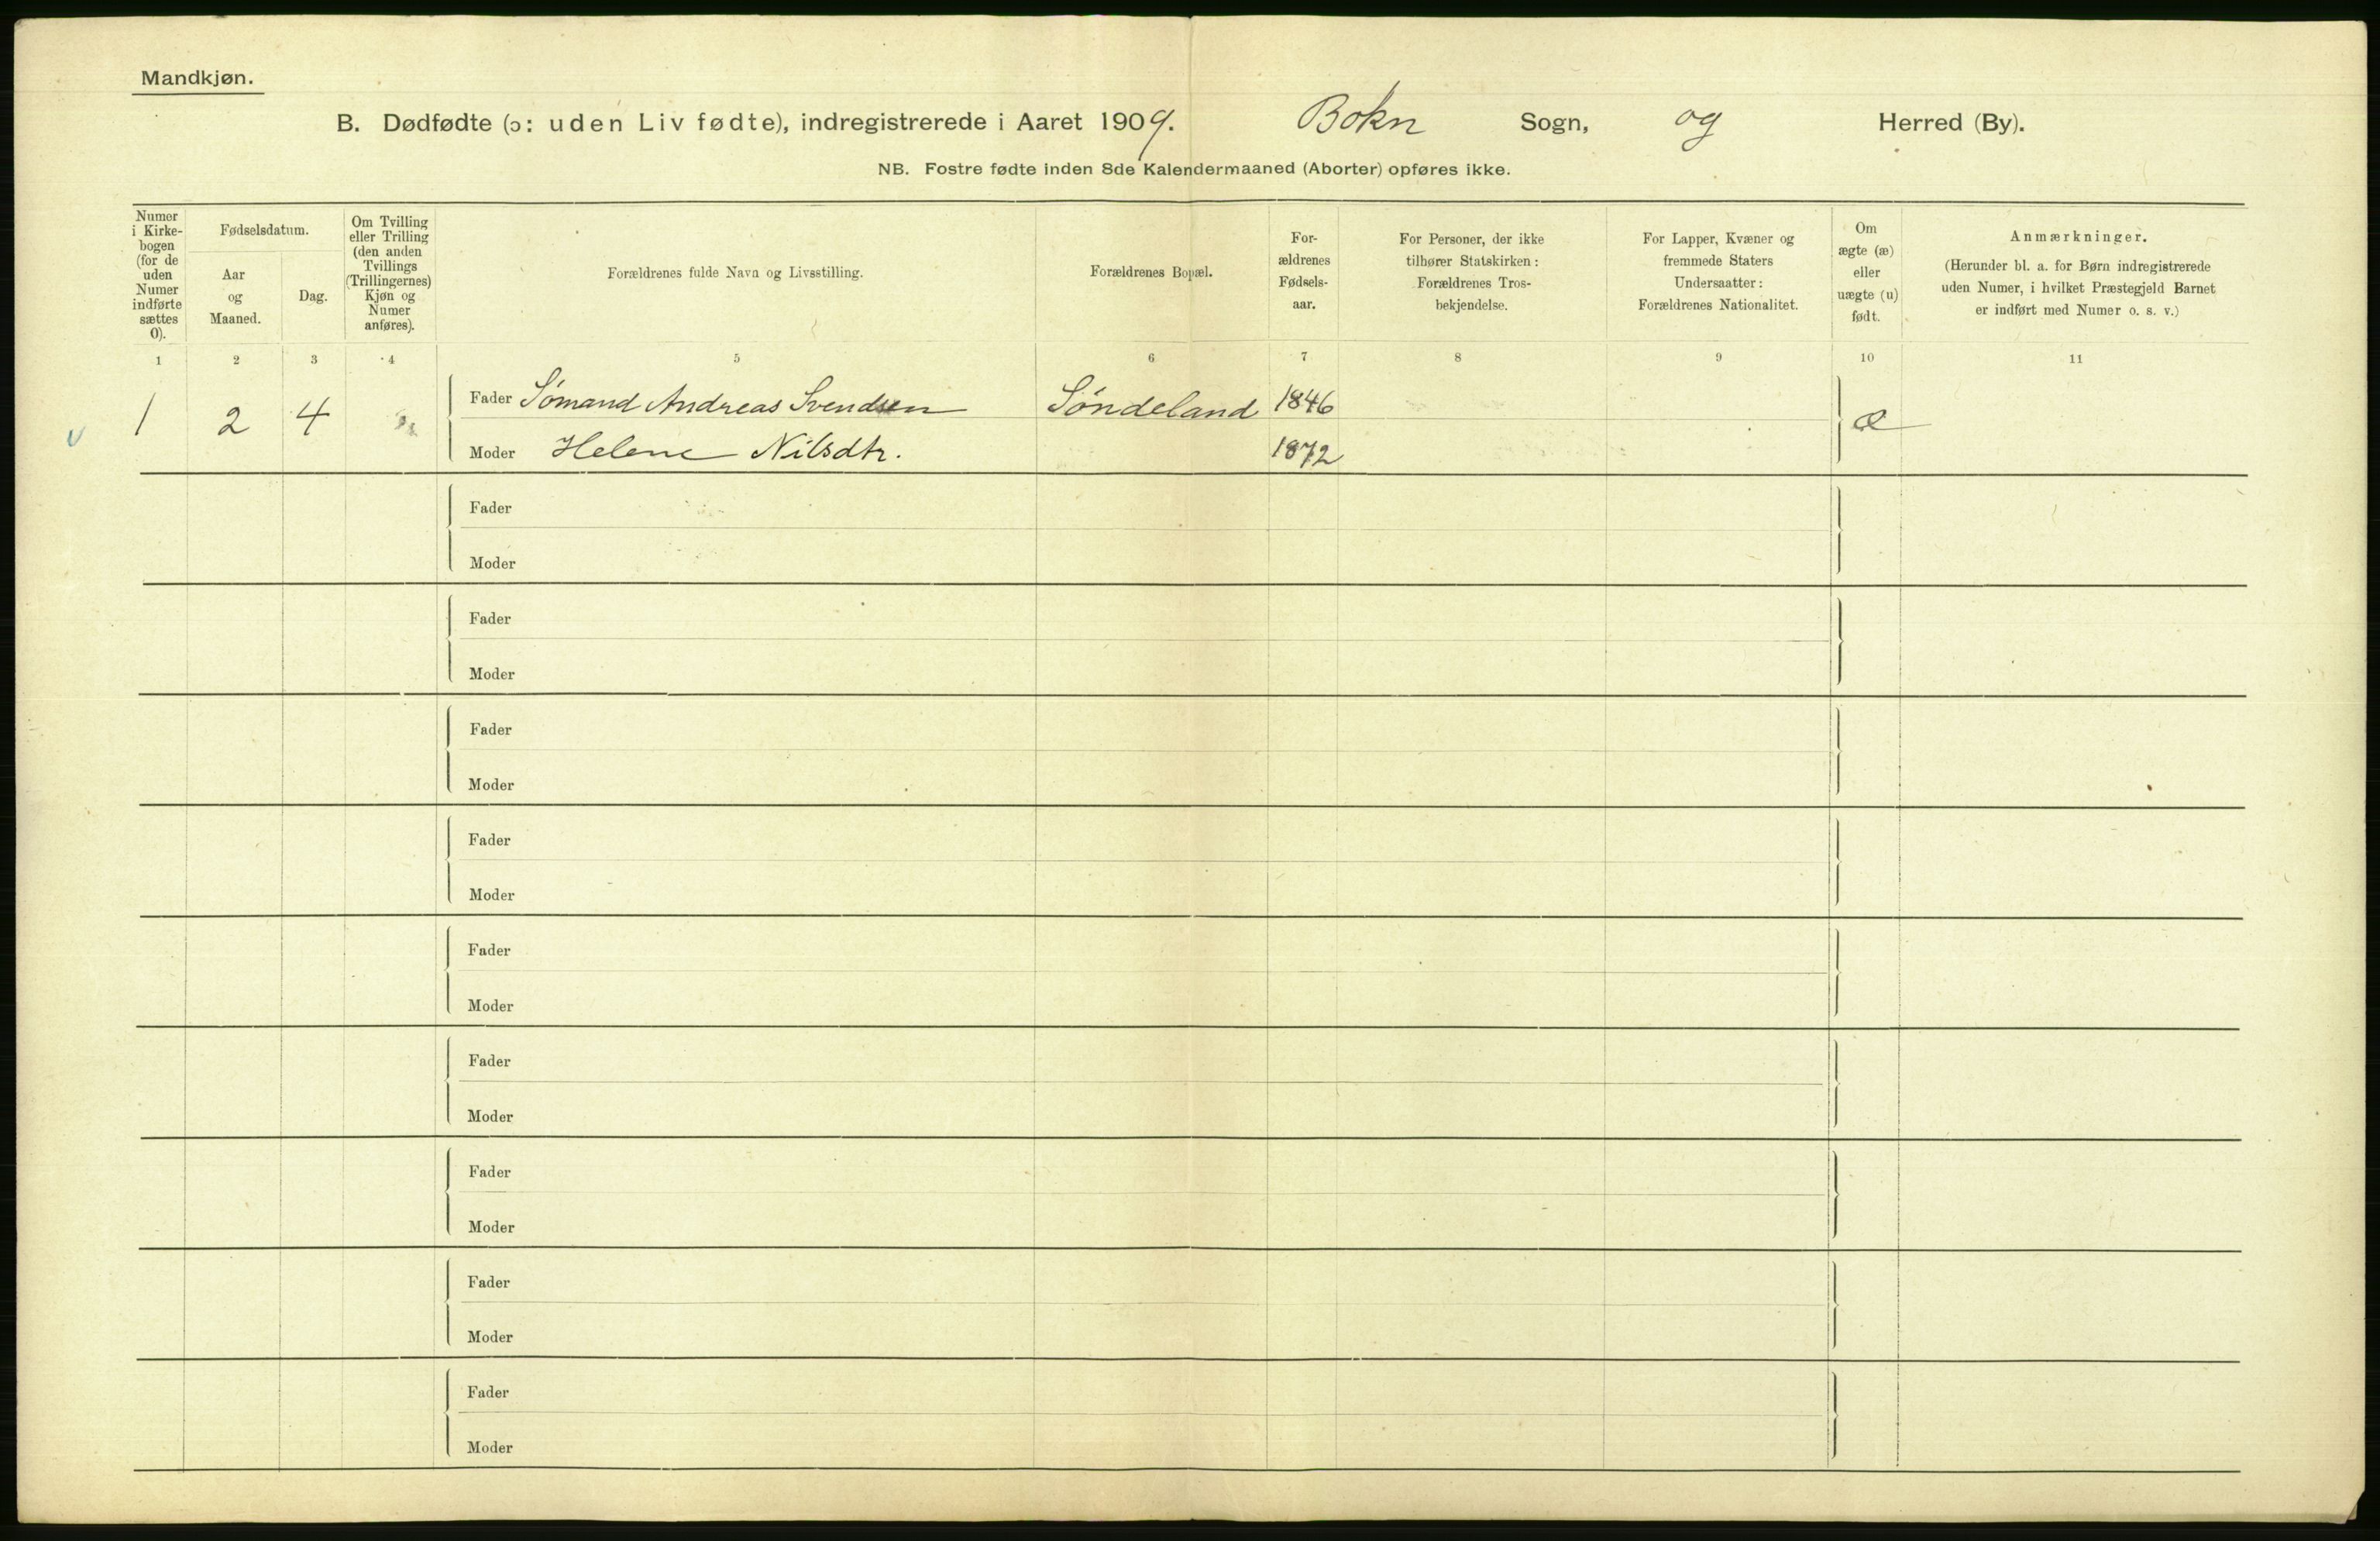 Mandkjøn.
B. Dødfødte (ɔ: uden Liv fødte), indregistrerede i Aaret 1909. Bokn Sogn, og Herred (By).
NB. Fostre fødte inden 8de Kalendermaaned (Aborter) opføres ikke.
Numer
i Kirke-
bogen
(for de
uden
Numer
indførte
sættes
0).
Fødselsdatum.
Aar
og
Maaned.
Dag.
Om Tvilling
eller Trilling
(den anden
Tvillings
(Trillingernes)
Kjøn og
Numer
anføres).
Forældrenes fulde Navn og Livsstilling.
Forældrenes Bopæl.
For-
ældrenes
Fødsels-
aar.
For Personer, der ikke
tilhører Statskirken:
Forældrenes Tros-
bekjendelse.
For Lapper, Kvæner og
fremmede Staters
Undersaatter:
Forældrenes Nationalitet.
Om
ægte (æ)
eller
uægte (u)
født.
Anmærkninger.
(Herunder bl. a. for Børn indregistrerede
uden Numer, i hvilket Præstegjeld Barnet
er indført med Numer o. s. v.)
1 2 3 4 5 6 7 8 9 10 11
Fader Sömand Andreas Svendsen Söndeland 1846
1 2 4 æ
Moder Helene Nilsdtr. 1872
Fader
Moder
Fader
Moder
Fader
Moder
Fader
Moder
Fader
Moder
Fader
Moder
Fader
Moder
Fader
Moder
Fader
Moder